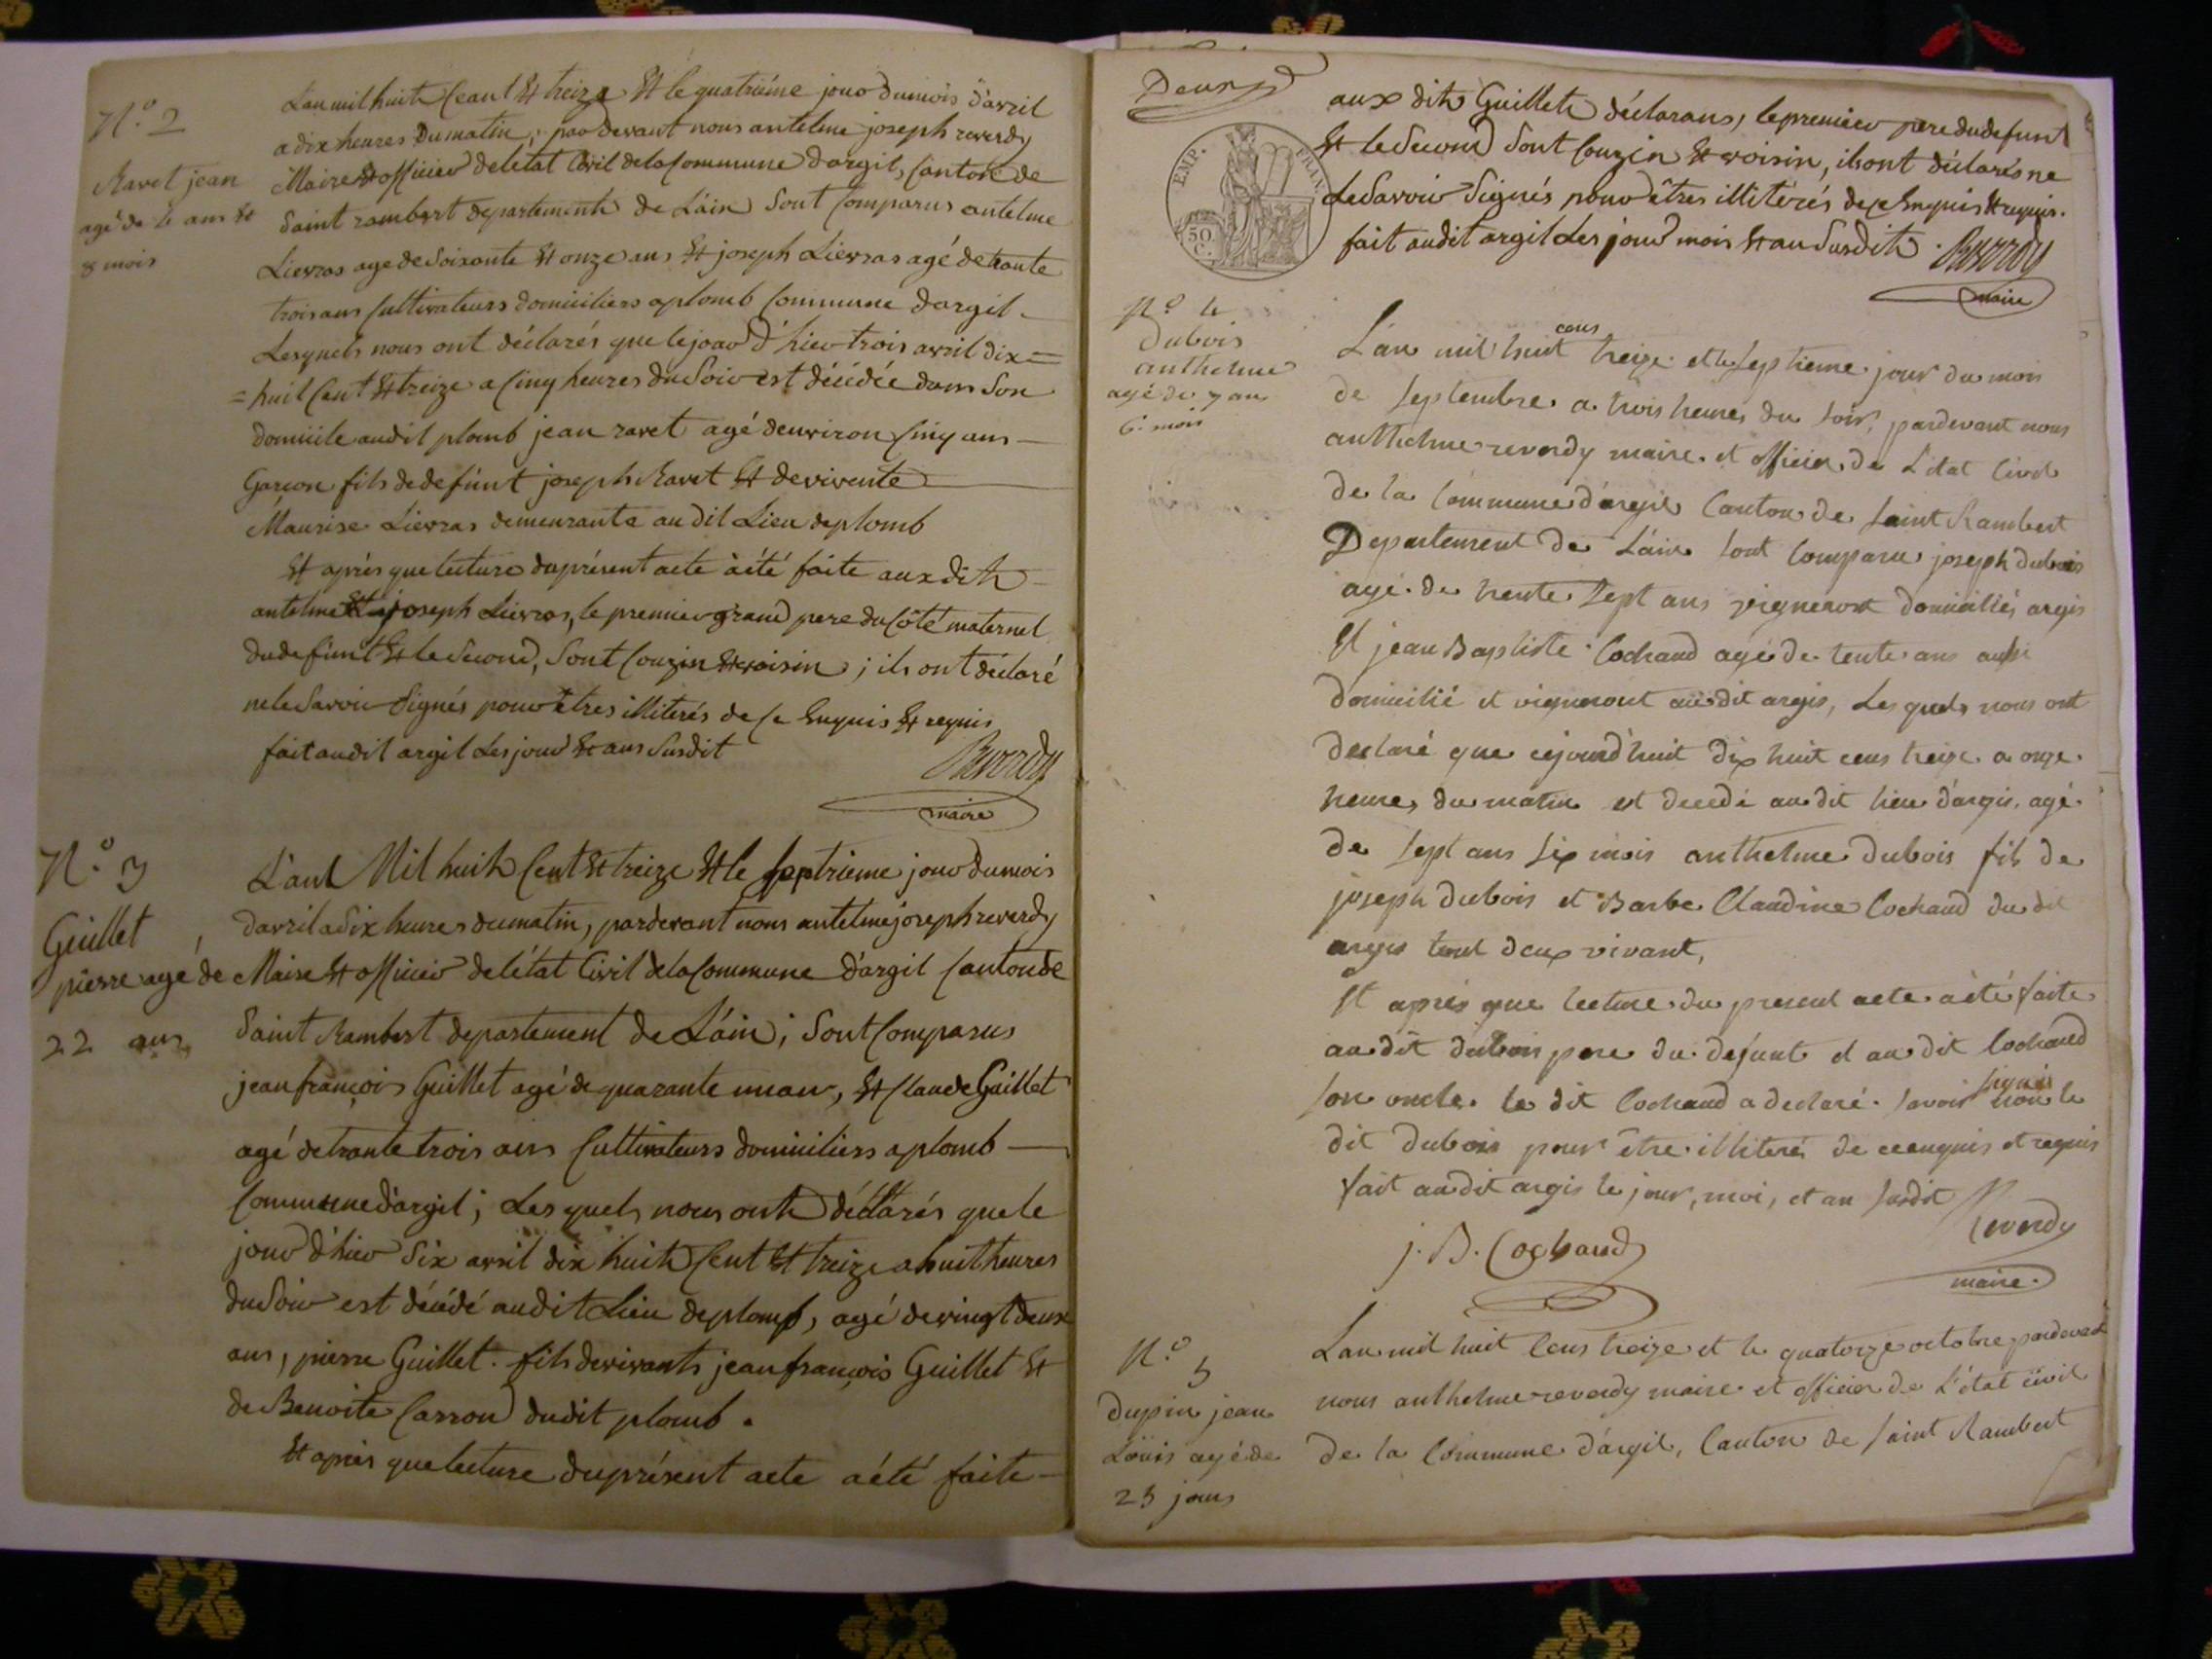 N.o 2
Ravet jean
agé de 4 ans et
8 mois
L'an mil huit Ceant Et treize Et le quatriéme jour du mois d'avril
a dix heures Du matin, par devant nous antelme joseph reverdy
Maire Et officier de letat Civil de la Commune d'argil, Canton de
Saint rambert departement de L'ain Sont Comparus antelme
Lievras age de Soixante Et onze ans Et joseph Lievras agé de trante
trois ans Cultivateurs domiciliers a plomb Commune d'argil
Lesquels nous ont déclarés que le jour d'hier trois avril dix=
=huit Cent Et treize a Cinq heures du Soir est décédée dans Son
domicile audit plomb jean ravet agé d'environ Cinq ans
Garcon fils de defunt joseph Ravet Et de vivente
Maurise Lievras demeurante au dit Lieu de plomb
Et aprés que lecture du présent acte à été faite aux dits
antelme Et joseph Lievras, le premier grand pere du Côté maternel
du defunt Et le Second, Sont Couzin Et voisin ; ils ont déclaré
ne le Savoir Signés pour êtres illiterés de Ce Enquis Et requis
fait audit argil Les jour Et ans Susdit
Reverdy
maire
N.o 3
Guillet
pierre agé de
22 ans
L'ant Mil huit Cent Et treize Et le septrieme jour du mois
d'avril a Dix heures du matin, pardevant nous antelme joseph reverdy
Maire Et officier de létat Civil de la Commune d'argil Canton de
Saint Rambert departement de L'áin ; Sont Comparus
jean françois Guillet agé de quarante un an, Et Claude Guillet
agé de trante trois ans Cultivateurs domiciliers a plomb
Commune d'argil ; Les quels nous onts déclarés que le
jour d'hier Six avril dix huit Cent Et treize a huit heures
du Soir est décédé audit Lieu de plomb, agé de vingt deux
ans, pierre Guillet. fils de vivants jean françois Guillet Et
de Benoite Carron dudit plomb.
Et aprés que lecture du présent acte a été faite
Deux
EMP. FRAN.
50 C.
aux dits Guillets déclarans, le premier pere du defunt
Et le Second Sont Couzin Et voisin, ils ont déclarés ne
Le Savoir Signés pour êtres illitérés de Ce Enquis Et requis.
fait audit argil Les jour mois Et an Susdits. Reverdy
maire
N.o 4
Dubois
anthelme
agé de 7 ans
6. mois
L'an mil huit cens treize et le septieme jour du mois
de septembre a trois heures du soir, pardevant nous
anthelme reverdy maire et officier de L'état Civil
de la Commune d'argil Canton de saint Rambert
Departement de L'áin sont Comparu joseph dubois
agé de trente sept ans vigneront domiciliés argis
Et jean Baptiste Cochaud agé de tente ans aussi
domicilié et vigneront au dit argis, Les quels nous ont
declaré que cejourd'huit dix huit cens treize a onze
heures du matin est decedé au dit lieu d'argis, agé
de sept ans six mois anthelme dubois fils de
joseph dubois et Barbe Claudine Cochaud du dit
argis tout deux vivant,
Et aprés que lecture du present acte a été faite
au dit dubois pere du defunt et au dit Cochaud
son oncle. le dit Cochaud a declaré savoir signés non le
dit Dubois pour être illiteré de ce enquis et requis
fait au dit argis le jour, moi, et an susdit Reverdy
maire.
j. B. Cochaud
N.o 5
Dupin jean
Louis agé de
23 jours
L'an mil huit Cens treize et le quatorze octobre pardevant
nous anthelme reverdy maire et officier de L'état civil
de la Commune d'argil, Canton de saint Rambert